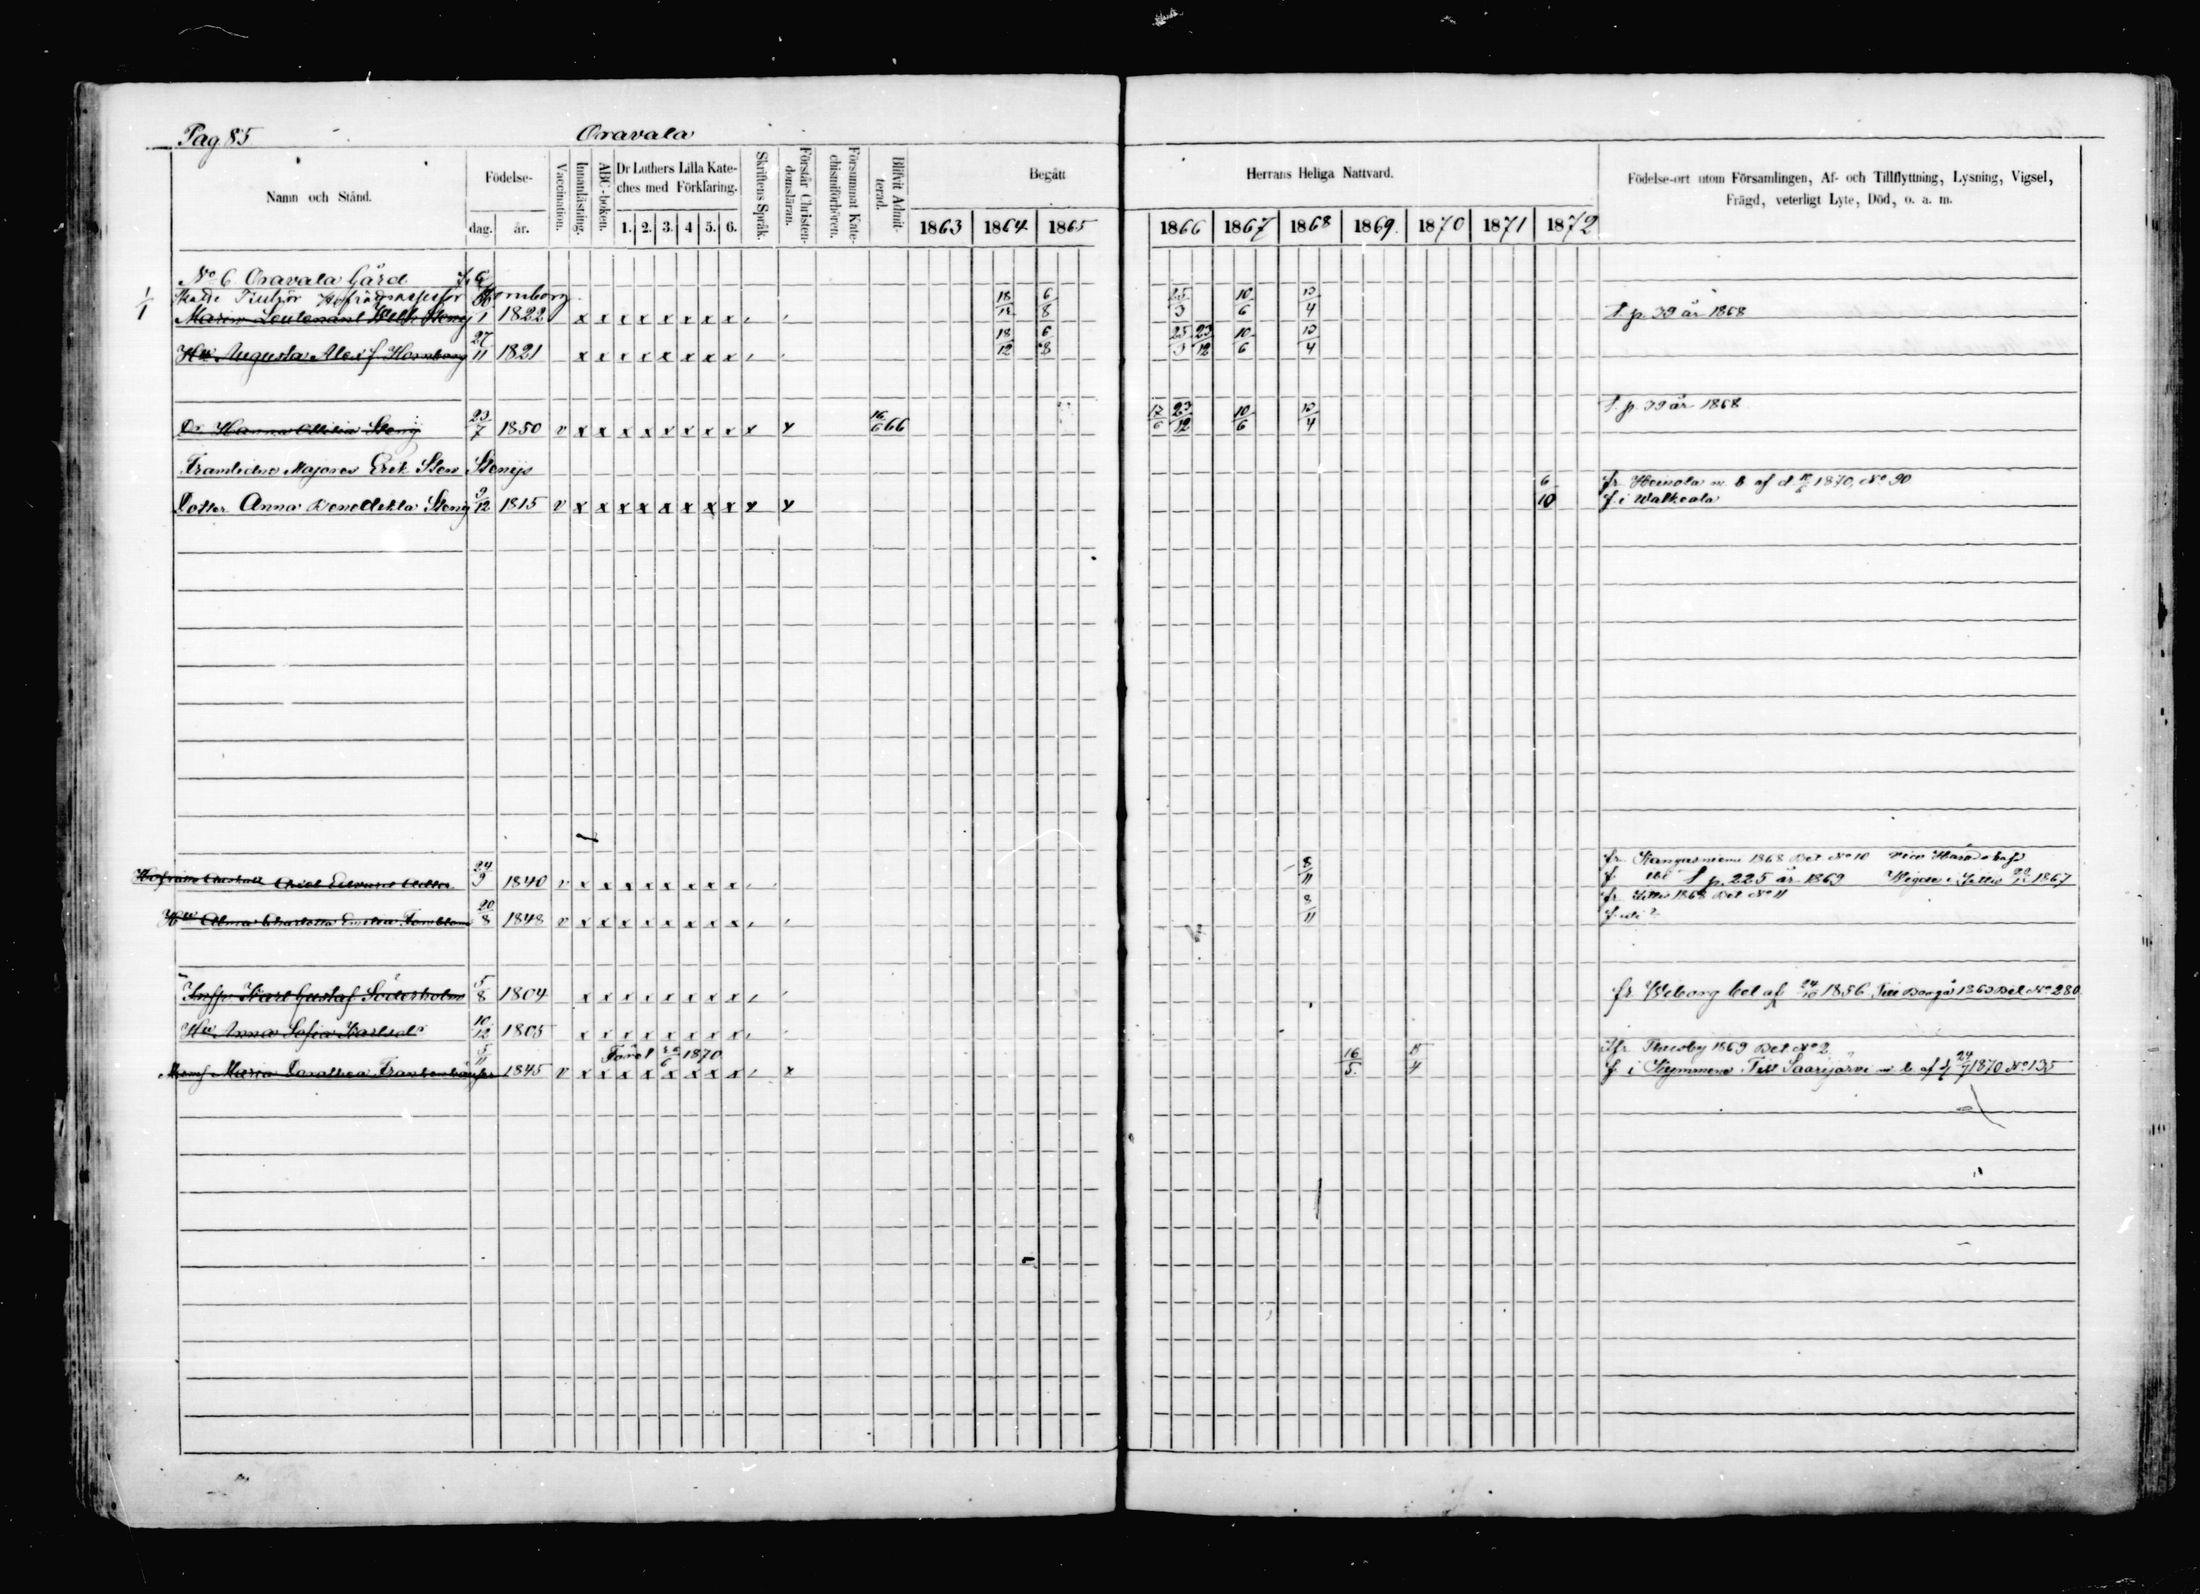 Pag 85
Oravala
Namn och Stånd.
Födelse-
dag. år.
Vaccination.
Innanläsning.
ABC-boken.
Dr Luthers Lilla Kate-
ches med Förklaring.
1. 2. 3. 4 5. 6.
Skriftens Språk.
Förstår Christen-
domsläran.
Försummat Kate-
chismiförhören.
Blifvit Admit-
terad.
Begått Herrans Heliga Nattvard.
1863 1864 1865 1866 1867 1868 1869. 1870 1871 1872
Födelse-ort utom Församlingen, Af- och Tillflyttning, Lysning, Vigsel,
Frägd, veterligt Lyte, Död, o. a. m.
No 6 Oravala Gård
1/1 Hornborg
18/12 6/8 25/3 10/6 13/4
Stenij 1 1822 x x x x x x x x S. p. 39 år 1868
Hu Augusta Hornborg 27/11 1821 x x x x x x x x 18/12 6/8 25/3 23/12 10/6 13/4
Dr Hanna Stenij 23/7 1850 v x x x x x x x x x x 16/6 66 17/6 23/12 10/6 13/4 S. p. 39 år 1868
Framlidne Majoren Erik Sten Stenijs
Dotter Anna Stenij 3/12 1815 v x x x x x x x x x x 6/10 fr Heinola m b af d 1870, No 90
f. i Walkeala
24/9 1840 v x x x x x x x x 8/11 fr Kangasniemi 1868 Bet No 10
S p. 225 år 1869 Wigde i Jittis 1867
Hu Alma Charlotta Emilia 20/8 1848 v x x x x x x x x 8/11 fr Jittis 1868 Bet No 11
Insp. Karl Gustaf Söderholm 5/8 1804 x x x x x x x x fr Wiborg bet af 24/10 1856 Till Borgå 1863 Bet No 280
Hu Anna Sofia 10/12 1805 x x x x x x x x
1870
Maria Dorothea 5/11 1845 v x x x x x x x x x 16/5 15/4 1869 Bet No 2
f i Kymmene Till Saarijärvi m b af d 24/7 1870 No 135